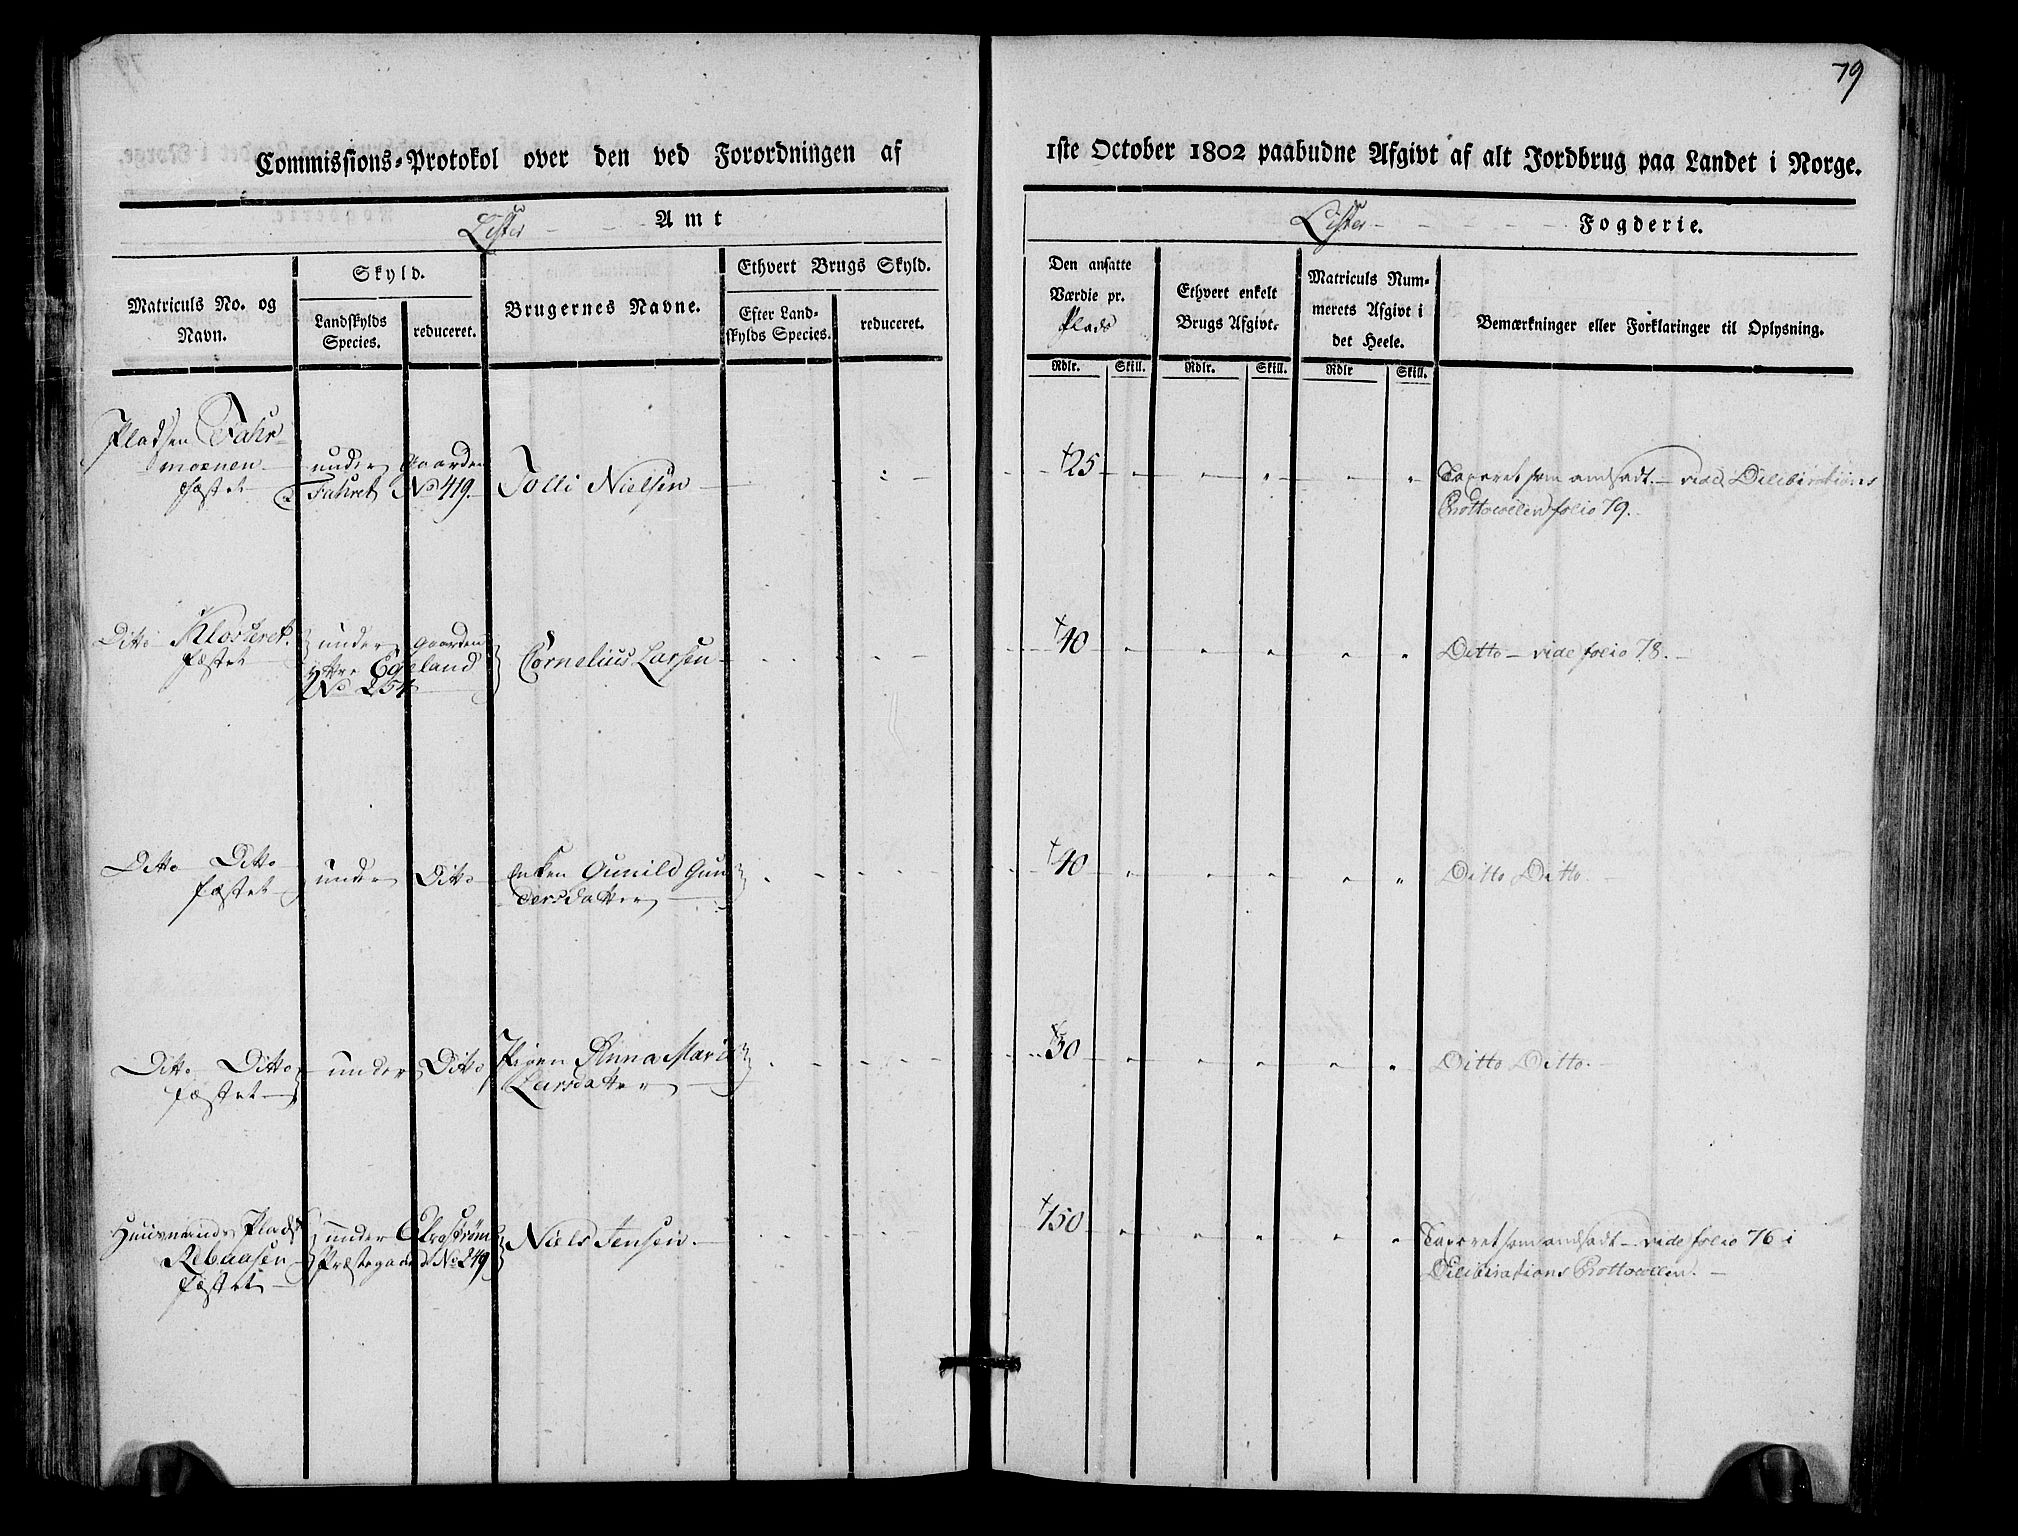 79
Commissions-Protokol over den ved Forordningen af 1ste October 1802 paabudne Afgivt af alt Jordbrug paa Landet i Norge.
Lister Amt
Lister Fogderie.
Matriculs No. og
Navn.
Skyld.
Landskylds
Species.
reduceret.
Brugernes Navne.
Ethvert Brugs Skyld.
Efter Land-
skylds Species.
reduceret.
Den ansatte
Værdie pr.
Plads
Rdlr. Skill.
Ethvert enkelt
Brugs Afgivt.
Rdlr. Skill.
Matriculs Num-
merets Afgivt i
det Heele.
Rdlr Skill.
Bemærkninger eller Forklaringer til Oplysning.
Pladsen Fahr-
moenen
fæstet
under Gaarden
Fahret No 419.
Tolli Nielsen
25
Taxeret som ansadt. vide Deliberations
Prottocollen folio 79.
Ditto Klosteret.
fæstet
under Gaarden
Ytre Egeland
No 254
Cornelius Larsen
40
Ditto vide folio 78.
Ditto Ditto
fæstet
under Ditto
Enken Gunild Gun
dersdatter
40
Ditto Ditto.
Ditto Ditto
fæstet
under Ditto
Pigen Anna Marie
Larsdatter
30
Ditto Ditto.
Huusmands Plads
Rebaasen
Fæstet
under
Præstegaard No 249
Niels Jensen.
150
Taxeret som ansadt vide folio 76 i
Deliberations Prottocollen.